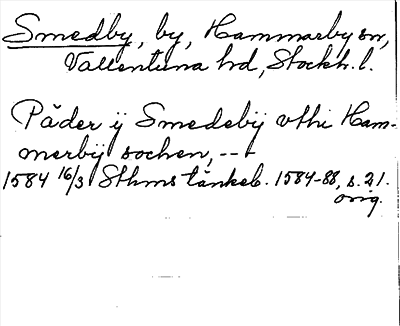 Smedby, by, Hammarby sn,
Vallentuna hd, Stockh. l.
Påder ij Smedebij vthi Ham-
merbij sochen, --
1584 16/3 Sthms tänkeb. 1584-88, s. 21.
orig.